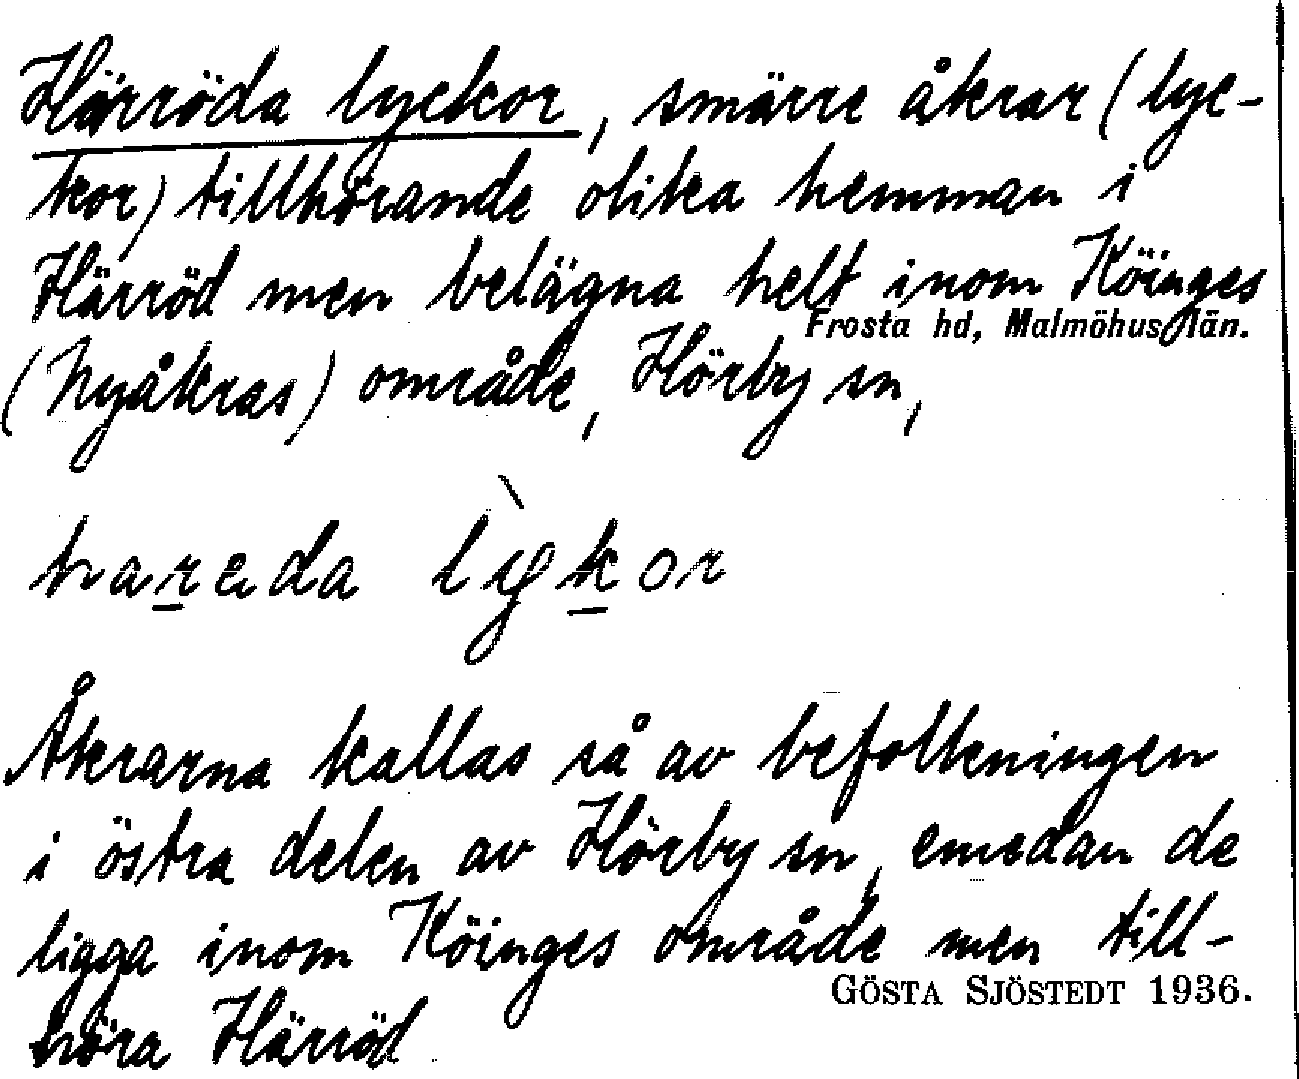 Härröda lyckor, smärre åkrar (lyc-
kor) tillhörande olika hemman i
Härröd men belägna helt inom Köinges
Frosta hd, Malmöhus län.
(Nyåkras) område, Hörby sn,
hareda lykor
Åkrarna kallas så av befolkningen
i östra delen av Hörby sn, emedan de
ligga inom Köinges område men till-
GÖSTA SJÖSTEDT 1936.
höra Härröd